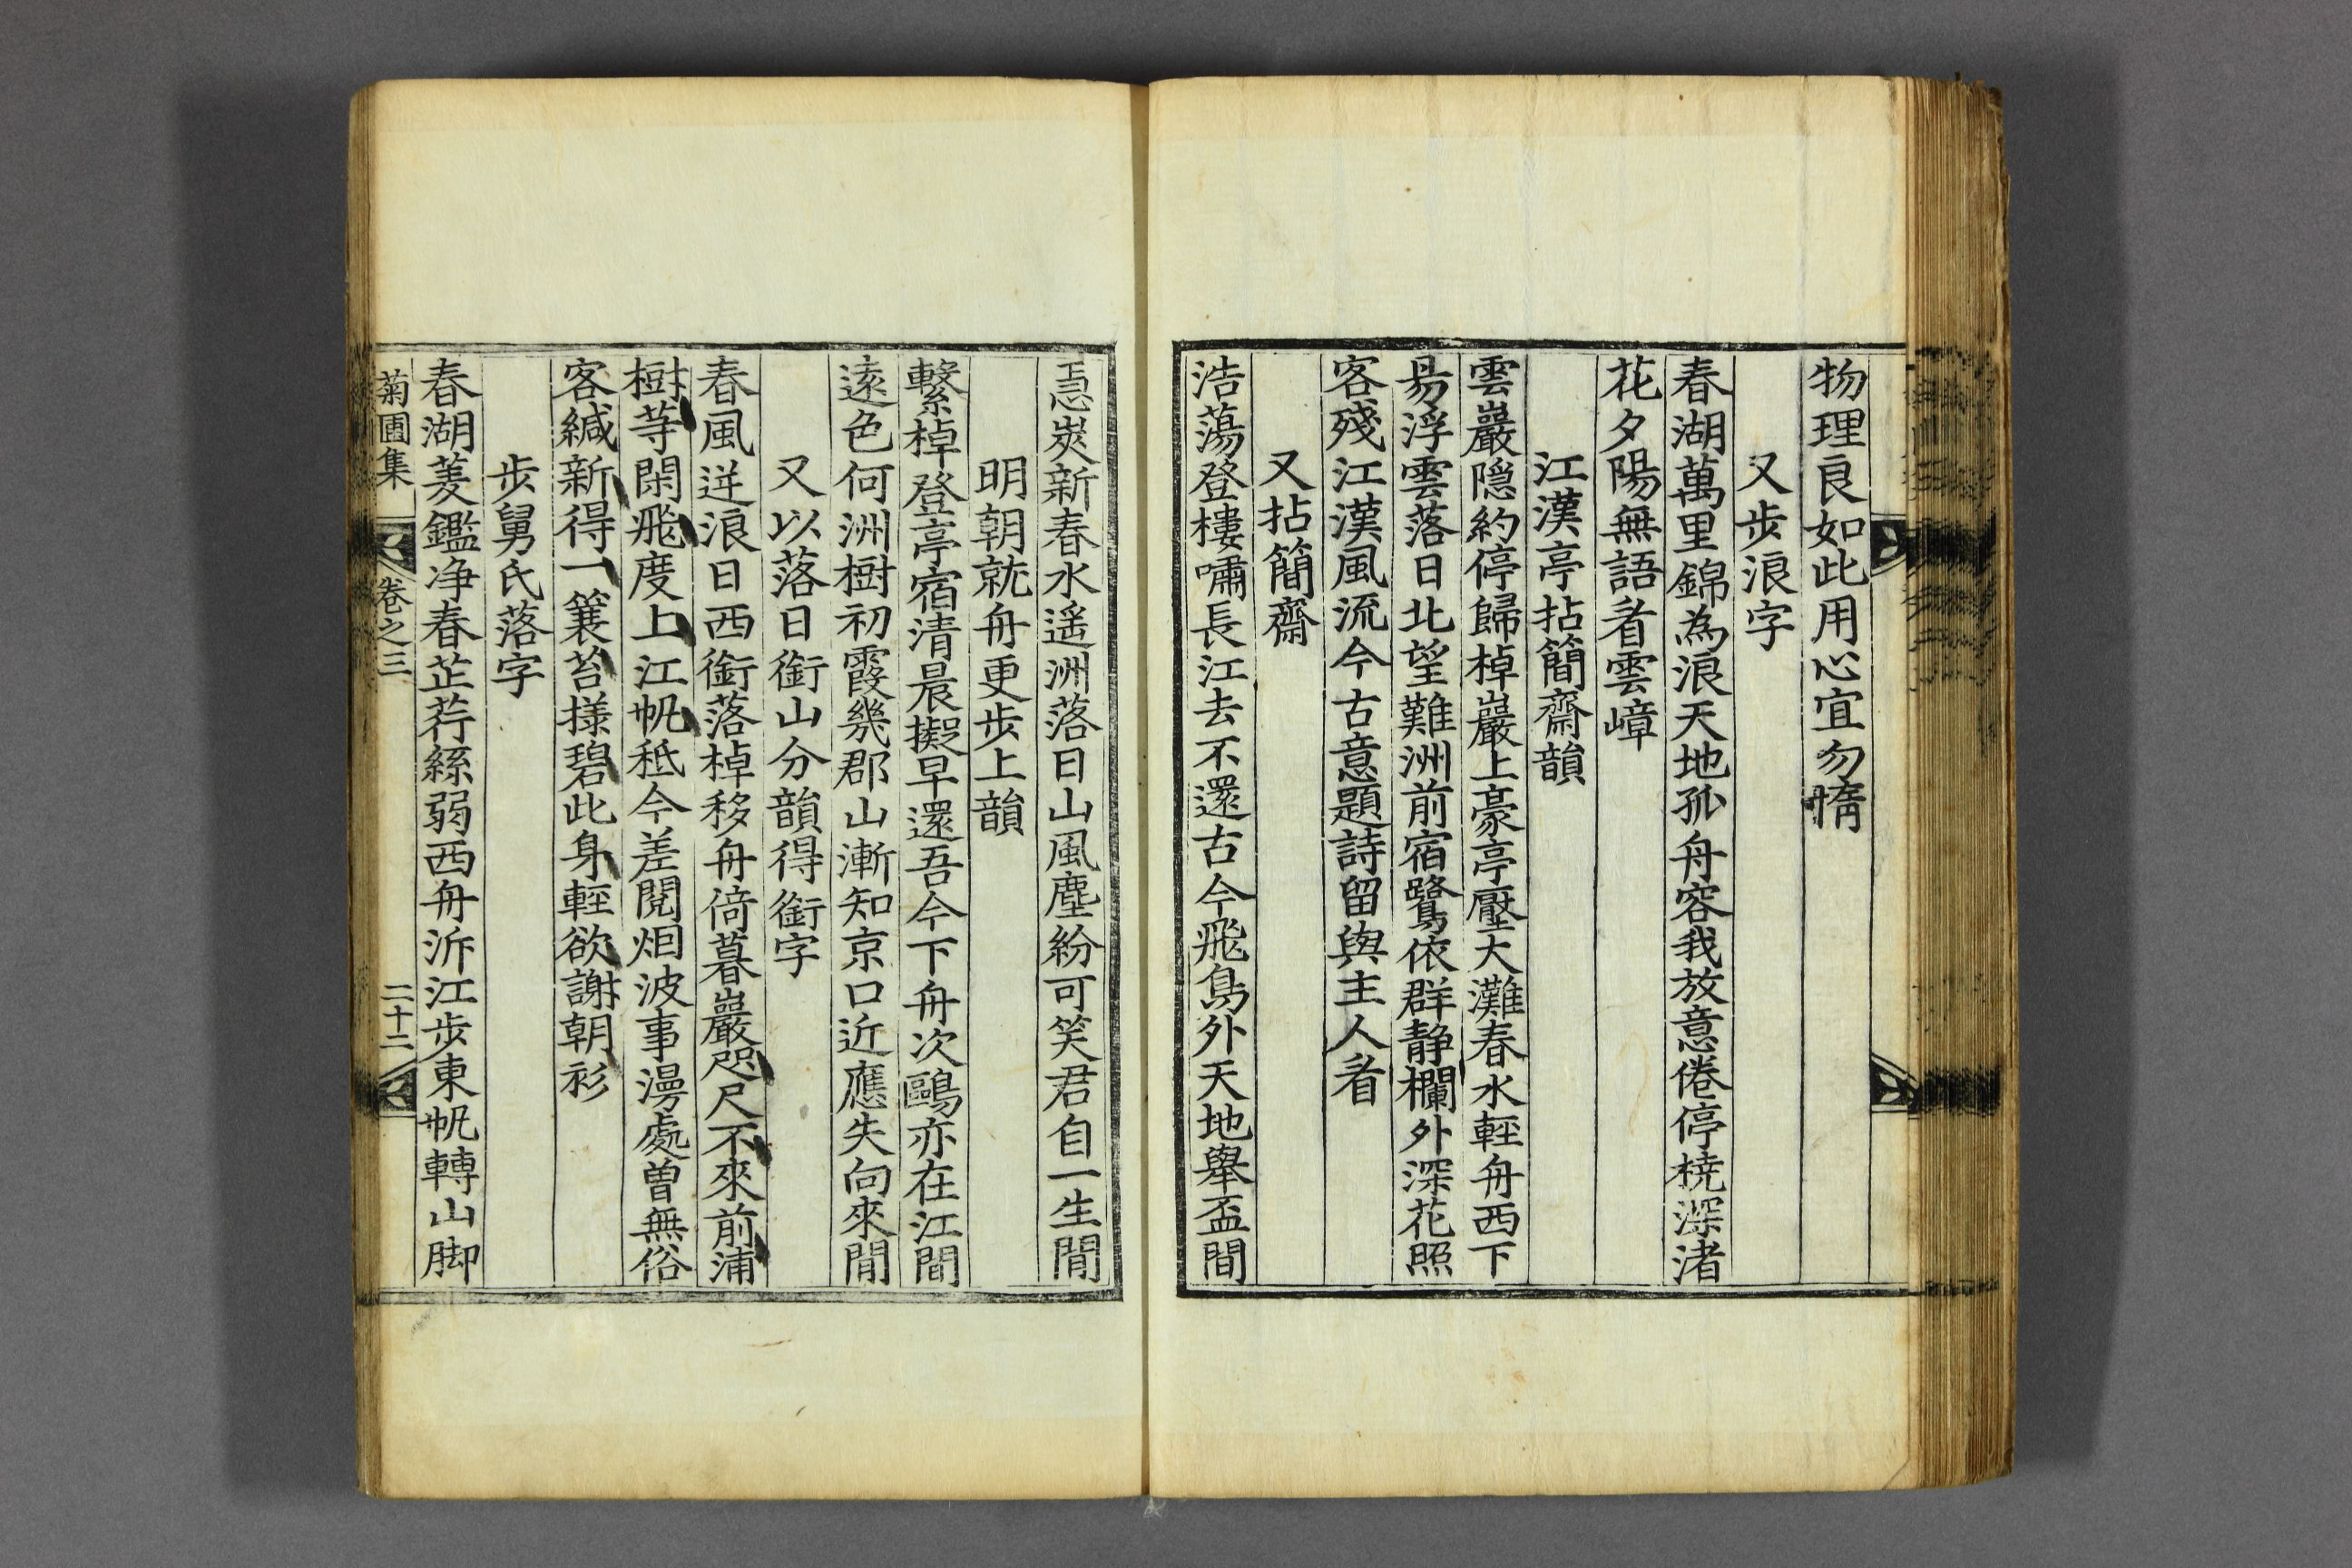 物理良如此用心宜勿惰
又步浪字
春湖萬里錦為浪天地孤舟容我放意倦停橈深渚
花夕陽無語看雲嶂
江漢亭拈簡齋韻
雲巖隠約停歸棹巖上豪亭壓大灘春水輕舟西下
易浮雲落日北望難洲前宿鷺依群静欄外深花照
客殘江漢風流今古意題詩留與主人看
又拈簡齋
浩蕩登樓嘯長江去不還古今飛鳥外天地舉盃間
急灘新春水遥洲落日山風塵紛可笑君自一生閒
明朝就舟更步上韻
繫棹登亭宿清晨擬早還吾今下舟次鷗亦在江間
遠色何洲樹初霞幾郡山漸知京口近應失向來閒
又以落日銜山分韻得銜字
春風逆浪日西銜落棹移舟倚暮巖咫尺不來前浦
樹等閑飛度上江帆秪今差閱烟波事漫處曽無俗
客緘新得一簑苔㨾碧此身輕欲謝朝衫
步舅氏落字
春湖菱鑑净春芷荇絲弱西舟泝江步東帆轉山脚
菊圃集 卷之三 二十二